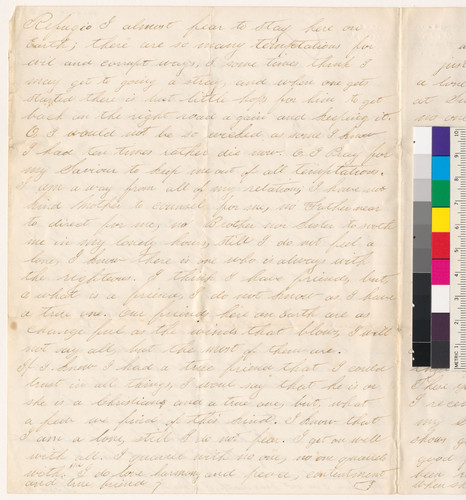 Refugio I almost fear to stay here on
Earth; there are so many temptations for
evil and corrupt ways, I some times think I
may get to going a stray, and when one gets
started there is but little hope for him to get
back in the right road again and keeping it.
O I would not be so wicked as some I know
I had ten times rather die now. O I Pray for
my Saviour to keep me out of all temptations.
I am a way from all of my relations, I have no
kind Mother to council for me, no Father near
to direct for me, no Brother nor Sister to sooth
me in my lonely hours, still I do not feel a
lone, I know there is one who is always with
the righteous. I think I have friends, but
a what is a friend, I do not know as I have
a true one. Our friends here on Earth are as
change ful as the winds that blow, I will
not say all, but the most of them are.
If I knew I had a true friend that I could
trust in all things, I would say that he is or
she is a Christian, and a true one, but, what
a few we find of this kind. I know that
I am a lone, still I do not fear. I get on well
with all. I quarrel with no one, no one quarrels
with me. I do love harmony and peace, contentment,
and true friends
just
a lone
at
no con
I recei
my s
show
good
been
when so
METRIC